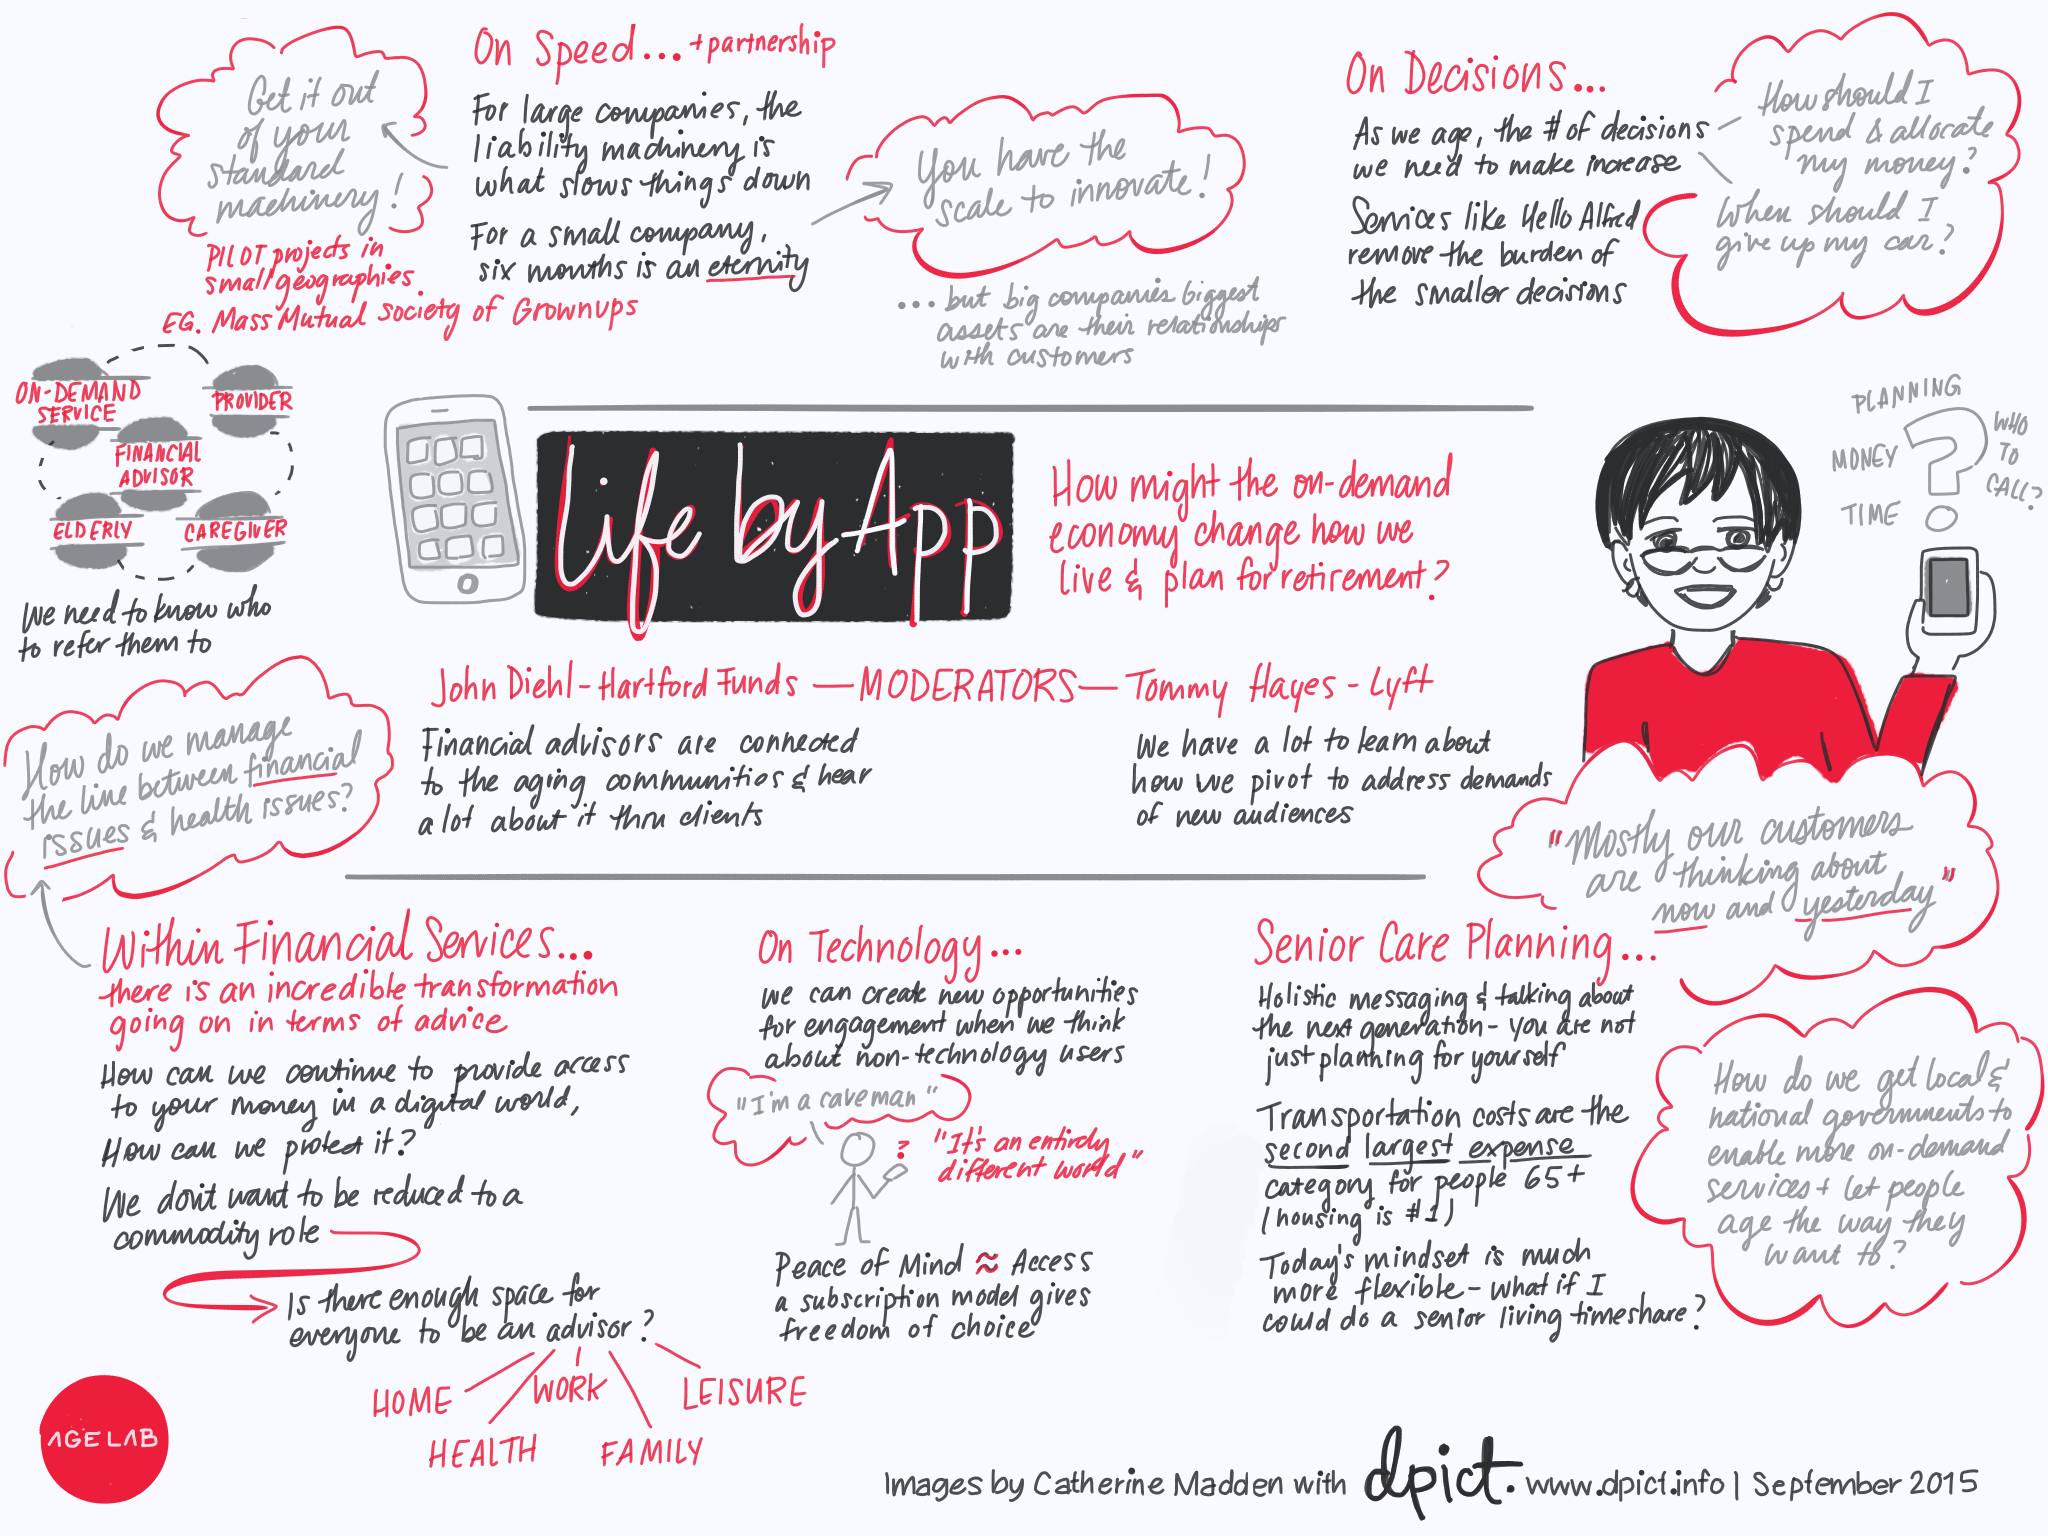 Get it out
of your
standard
machinery!
PILOT projects in
small geographies.
EG. Mass Mutual Society of Grownups
On Speed... + partnership
For large companies, the
liability machinery is
what slows things down
For a small company,
six months is an eternity
You have the
scale to innovate!
... but big companies biggest
assets are their relationships
with customers
On Decisions...
As we age, the # of decisions
we need to make increase
Services like Hello Alfred
remove the burden of
the smaller decisions
How should I
spend & allocate
my money?
When should I
give up my car?
ON-DEMAND
SERVICE
PROVIDER
FINANCIAL
ADVISOR
ELDERLY
CAREGIVER
We need to know who
to refer them to
Life by App
How might the on-demand
economy change how we
live & plan for retirement?
PLANNING
MONEY
TIME
?
WHO
TO
CALL?
John Diehl - Hartford Funds — MODERATORS — Tommy Hayes - Lyft
Financial advisors are connected
to the aging communities & hear
a lot about it thru clients
We have a lot to learn about
how we pivot to address demands
of new audiences
How do we manage
the line between financial
issues & health issues?
"Mostly our customers
are thinking about
now and yesterday"
Within Financial Services...
there is an incredible transformation
going on in terms of advice
How can we continue to provide access
to your money in a digital world,
How can we protect it?
We don't want to be reduced to a
commodity role
Is there enough space for
everyone to be an advisor?
HOME
WORK
LEISURE
HEALTH
FAMILY
On Technology...
we can create new opportunities
for engagement when we think
about non-technology users
"I'm a caveman"
?
"It's an entirely
different world"
Peace of Mind ≈ Access
a subscription model gives
freedom of choice
Senior Care Planning...
Holistic messaging & talking about
the next generation - you are not
just planning for yourself
Transportation costs are the
second largest expense
category for people 65+
(housing is #1)
Today's mindset is much
more flexible - what if I
could do a senior living timeshare?
How do we get local &
national governments to
enable more on-demand
services + let people
age the way they
want to?
AGELAB
Images by Catherine Madden with dpict. www.dpict.info | September 2015